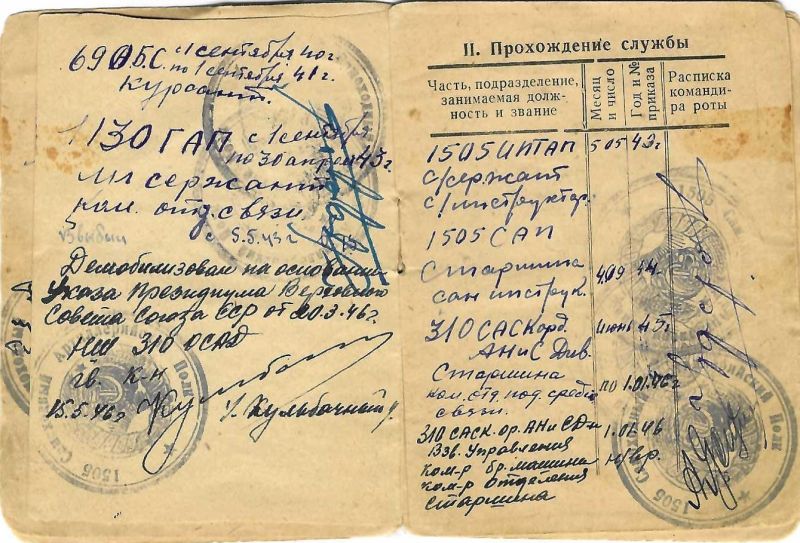 69 О.Б.С. с 1 сентября 40 г.
по 1 сентября 41 г.
Курсант.
1130 ГАП с 1 сентября
по 30 апреля 43 г.
мл сержант
ком. отд. связи
Выбыл
с 5.5.43 г
Демобилизован на основании
Указа Президиума Верховного
Совета Союза ССР от 20.3.46 г.
НШ 310 ОСАД
гв. к-н
15.5.46 г.
/Кульбачный/
1505 Сам
II. Прохождение службы
Часть, подразделение, занимаемая долж- ность и звание
Месяц и число
Год и № приказа
Расписка команди- ра роты
1505 ИПТАП 5 05 43 г.
с/сержант
с/инструктор.
1505 САП
Старшина 4.09 44 г.
сан инструк.
310 САСК орд. июнь 45 г.
АН и С Див.
Старшина по 1.01.46 г
ком. отд. под. средс
связи.
310 САСК. ор. АН и С Д-н 1.01.46
Взв. Управления н/вр.
ком-р бр. машины
ком-р отделения
Старшина
1505 Сам
ийский Полк